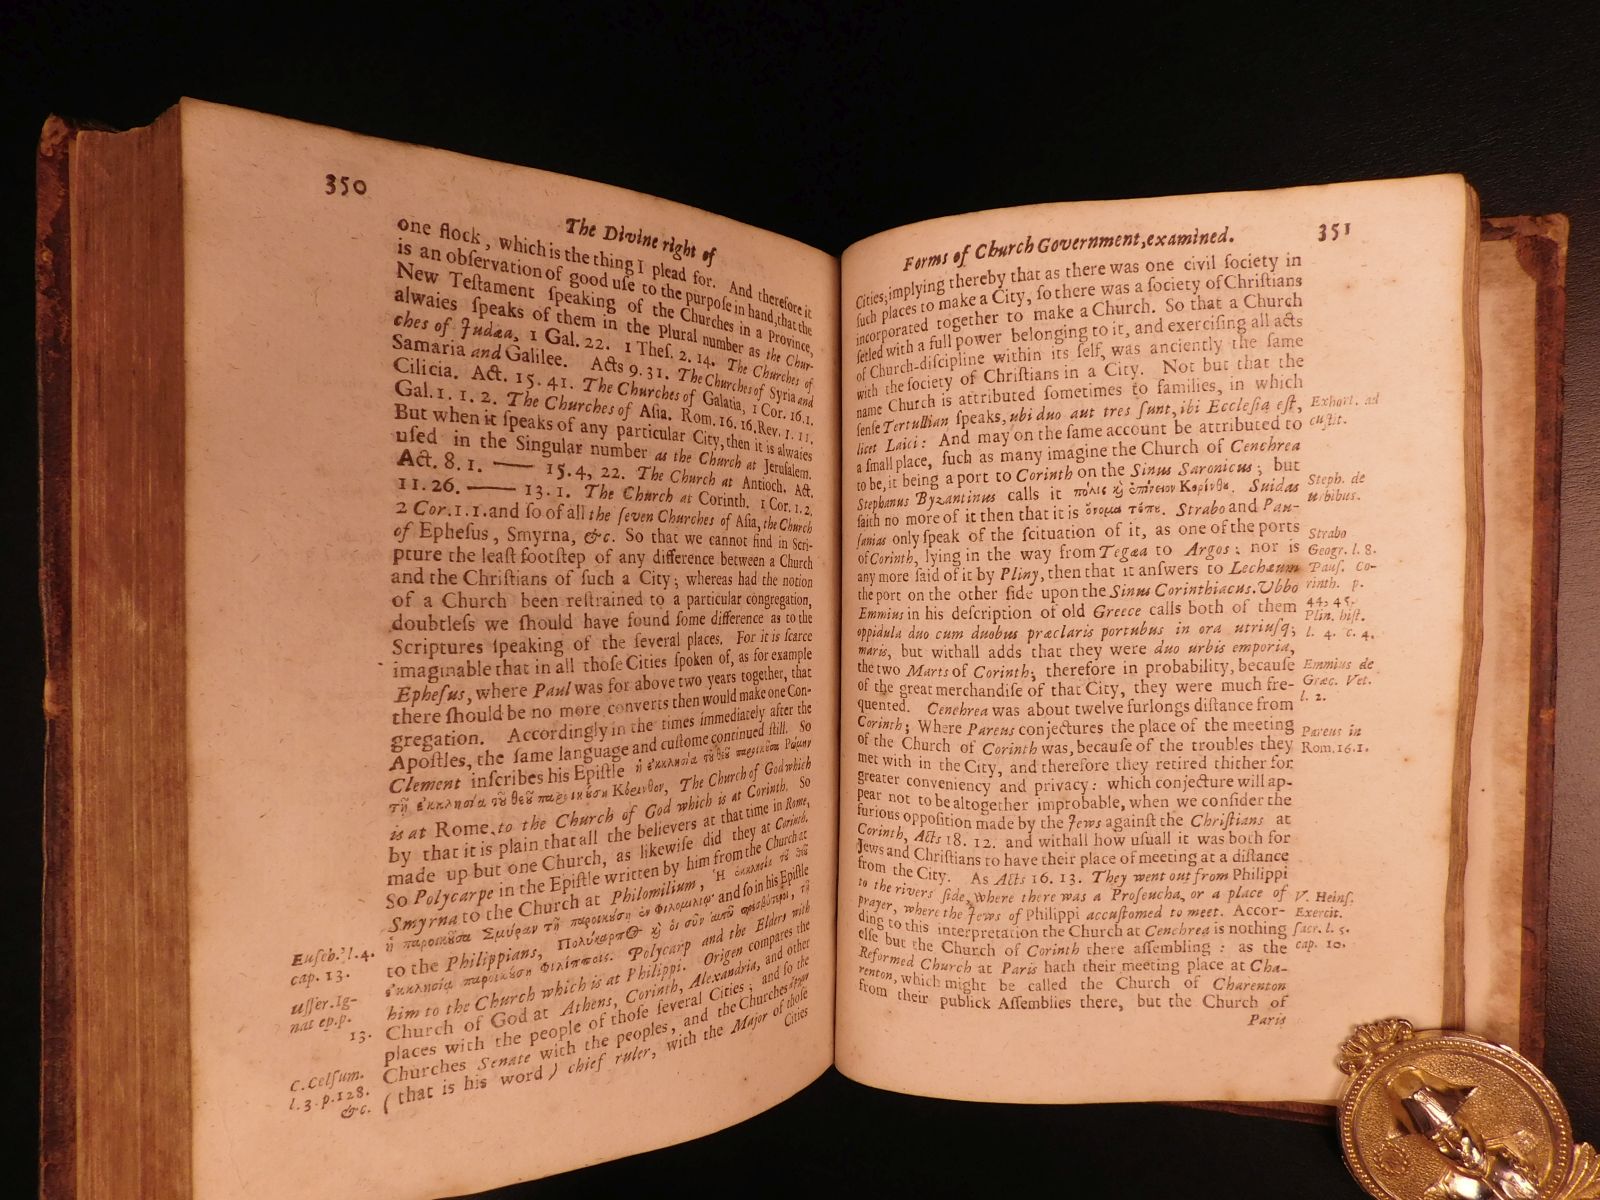 350
The Divine right of
one flock, which is the thing I plead for. And therefore it
is an obſervation of good uſe to the purpoſe in hand, that the
New Teſtament ſpeaking of the Churches in a Province,
alwaies ſpeaks of them in the Plural number as the Chur-
ches of Judæa, 1 Gal. 22. 1 Theſ. 2. 14. The Churches of
Samaria and Galilee. Acts 9. 31. The Churches of Syria and
Cilicia. Act. 15. 41. The Churches of Galatia, 1 Cor. 16. 1.
Gal. 1. 1. 2. The Churches of Aſia. Rom. 16. 16. Rev. 1. 11.
But when it ſpeaks of any particular City, then it is alwaies
uſed in the Singular number as the Church at Jeruſalem.
Act. 8. 1. —— 15. 4, 22. The Church at Antioch. Act.
11. 26. —— 13. 1. The Church at Corinth. 1 Cor. 1. 2.
2 Cor. 1. 1. and ſo of all the ſeven Churches of Aſia, the Church
of Epheſus, Smyrna, &c. So that we cannot find in Scri-
pture the leaſt footſtep of any difference between a Church
and the Chriſtians of ſuch a City; whereas had the notion
of a Church been reſtrained to a particular congregation,
doubtleſs we ſhould have found ſome difference as to the
Scriptures ſpeaking of the ſeveral places. For it is ſcarce
imaginable that in all thoſe Cities ſpoken of, as for example
Epheſus, where Paul was for above two years together, that
there ſhould be no more converts then would make one Con-
gregation. Accordingly in the times immediately after the
Apoſtles, the ſame language and cuſtome continued ſtill. So
Clement inſcribes his Epiſtle ἡ ἐκκλησία τοῦ θεοῦ παροικοῦσα Ῥώμην
τῇ ἐκκλησίᾳ τοῦ θεοῦ παροικούσῃ Κόρινθον, The Church of God which
is at Rome, to the Church of God which is at Corinth. So
by that it is plain that all the believers at that time in Rome,
made up but one Church, as likewiſe did they at Corinth.
So Polycarpe in the Epiſtle written by him from the Church at
Smyrna to the Church at Philomilium, Ἡ ἐκκλησία τοῦ θεοῦ
ἡ παροικοῦσα Σμύρναν τῇ παροικούσῃ ἐν Φιλομιλίῳ and ſo in his Epiſtle
to the Philippians, Πολύκαρπος καὶ οἱ σὺν αὐτῷ πρεσβύτεροι, τῇ
ἐκκλησίᾳ παροικούσῃ Φιλίπποις. Polycarp and the Elders with
him to the Church which is at Philippi. Origen compares the
Church of God at Athens, Corinth, Alexandria, and other
places with the people of thoſe ſeveral Cities; and ſo the
Churches Senate with the peoples, and the Churches
(that is his word) chief ruler, with the Major of thoſe
Cities
Euſeb. l. 4.
cap. 13.
uſſer. Ig-
nat ep. p.
13.
c. Celſum.
l. 3. p. 128.
&c.
Forms of Church Government, examined.
351
Cities; implying thereby that as there was one civil ſociety in
ſuch places to make a City, ſo there was a ſociety of Chriſtians
incorporated together to make a Church. So that a Church
ſetled with a full power belonging to it, and exerciſing all acts
of Church-diſcipline within its ſelf, was anciently the ſame
with the ſociety of Chriſtians in a City. Not but that the
name Church is attributed ſometimes to families, in which
ſenſe Tertullian ſpeaks, ubi duo aut tres ſunt, ibi Eccleſia eſt,
licet Laici: And may on the ſame account be attributed to
a ſmall place, ſuch as many imagine the Church of Cenchrea
to be, it being a port to Corinth on the Sinus Saronicus; but
Stephanus Byzantinus calls it πόλις καὶ ἐπίνειον Κορίνθου. Suidas
ſaith no more of it then that it is ὄνομα τόπου. Strabo and Pau-
ſanias only ſpeak of the ſcituation of it, as one of the ports
of Corinth, lying in the way from Tegæa to Argos: nor is
any more ſaid of it by Pliny, then that it anſwers to Lechæum
the port on the other ſide upon the Sinus Corinthiacus. Ubbo
Emmius in his deſcription of old Greece calls both of them
oppidula duo cum duobus præclaris portubus in ora utriuſq;
maris, but withall adds that they were duo urbis emporia,
the two Marts of Corinth; therefore in probability, becauſe
of the great merchandiſe of that City, they were much fre-
quented. Cenchrea was about twelve furlongs diſtance from
Corinth; Where Pareus conjectures the place of the meeting
of the Church of Corinth was, becauſe of the troubles they
met with in the City, and therefore they retired thither for
greater conveniency and privacy: which conjecture will ap-
pear not to be altogether improbable, when we conſider the
furious oppoſition made by the Jews againſt the Chriſtians at
Corinth, Acts 18. 12. and withall how uſuall it was both for
Jews and Chriſtians to have their place of meeting at a diſtance
from the City. As Acts 16. 13. They went out from Philippi
to the rivers ſide, where there was a Proſeucha, or a place of
prayer, where the Jews of Philippi accuſtomed to meet. Accor-
ding to this interpretation the Church at Cenchrea is nothing
elſe but the Church of Corinth there aſſembling: as the
Reformed Church at Paris hath their meeting place at Cha-
renton, which might be called the Church of Charenton
from their publick Aſſemblies there, but the Church of
Paris
Exhort. ad
caſtit.
Steph. de
urbibus.
Strabo
Geogr. l. 8.
Pauſ. Co-
rinth. p.
44, 45.
Plin. hiſt.
l. 4. c. 4.
Emmius de
Græc. Vet.
l. 2.
Pareus in
Rom. 16. 1.
V. Heinſ.
Exercit.
ſacr. l. 5.
cap. 10.